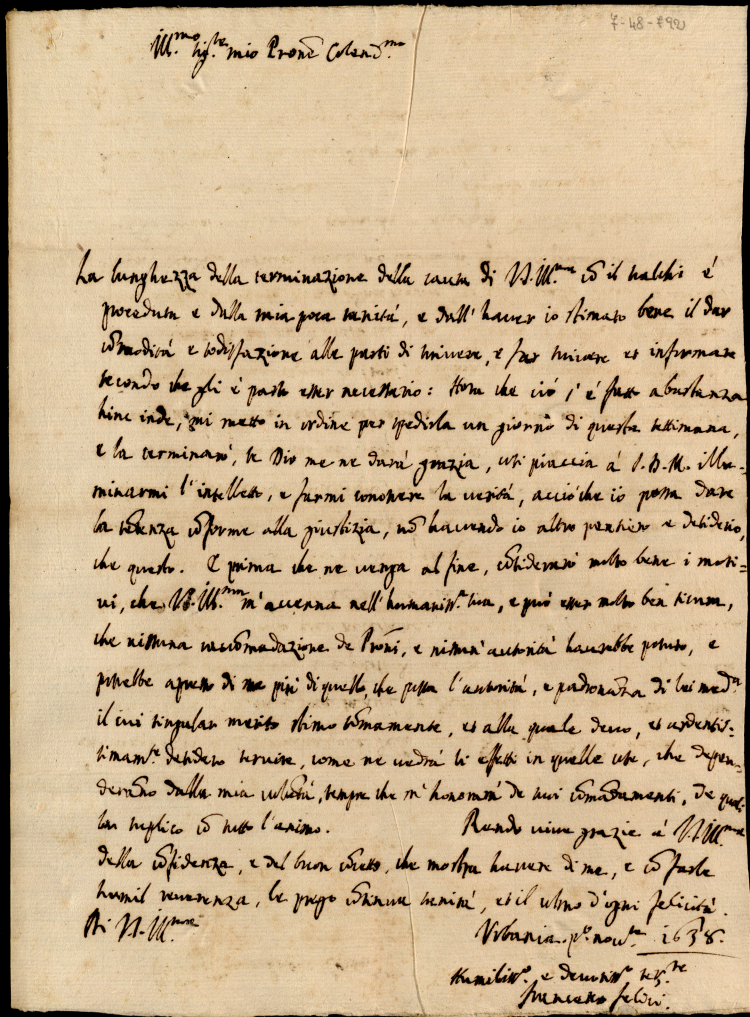 7-48-792
Ill.mo Sig.re mio Pron͂e Colend.mo
La lunghezza della terminazione della causa di V.S. Ill.ma cõ il è
proceduta e dalla mia poca sanità, e dall'haver io stimato bene il dar
cõmodità e sodisfazione alle parti di scrivere, e far scrivere et informare
secondo che gli è parso esser necessario: Hora che ciò s'è fatto abastanza
hinc inde, mi metto in ordine per spedirla un giorno di questa settimana,
e la terminarò, se Dio me ne darà grazia, così piaccia à S.D.M. illu=
minarmi l'intelletto, e farmi conoscere la verità, acciò che io possa dare
la sẽtenza cõforme alla giustizia, nõ havendo io altro pensiero e desiderio,
che questo. E prima che ne venga al fine, cõsiderarò molto bene i moti=
vi, che V.S. Ill.ma m'accenna nell'humaniss.a sua, e può esser molto ben sicura,
che nissuna raccomãdazione de Prõni, e nissun'autorità haverebbe potuto, e
potrebbe apresso di me più di quello, che possa l'autorità, e padronãza di lei med.a
il cui singular merito stimo sõmamente, et alla quale devo, et ardentis=
simam.te desidero servire, come ne vedrà li effetti in quelle cose, che depen=
derãno dalla mia volõtà, sempre che m'honorarà de suoi comãdamenti, de quali
la suplico cõ tutto l'animo. Rendo vive grazie à V.S. Ill.ma
della cõfidenza, e del buon cõcetto, che mostra havere di me, e cõ farle
humil reverenza, le prego cõtinua sanità, et il colmo d'ogni felicità.
Di V.S. Ill.ma
Urbania p.o nov.re 1638.
Humiliss.o e devotiss.o ser.re
Francesco